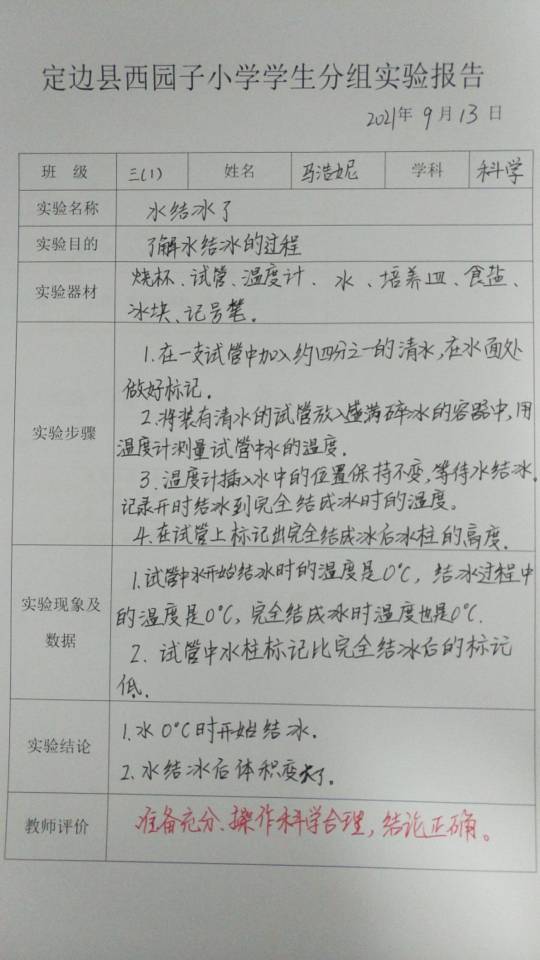 定边县西园子小学学生分组实验报告
2021年 9月13日
班 级 三(1) 姓名 马浩妮 学科 科学
实验名称 水结冰了
实验目的 了解水结冰的过程
实验器材 烧杯、试管、温度计、水、培养皿、食盐、
冰块、记号笔.
实验步骤
1.在一支试管中加入约四分之一的清水,在水面处
做好标记.
2.将装有清水的试管放入盛满碎冰的容器中,用
温度计测量试管中水的温度.
3.温度计插入水中的位置保持不变,等待水结冰.
记录开时结冰到完全结成冰时的温度。
4.在试管上标记出完全结成冰后冰柱的高度.
实验现象及
数据
1.试管中水开始结冰时的温度是0°C,结冰过程中
的温度是0°C,完全结成冰时温度也是0°C.
2.试管中水柱标记比完全结冰后的标记
低.
实验结论
1.水0°C时开始结冰.
2.水结冰后体积变大了.
教师评价 准备充分、操作科学合理,结论正确。